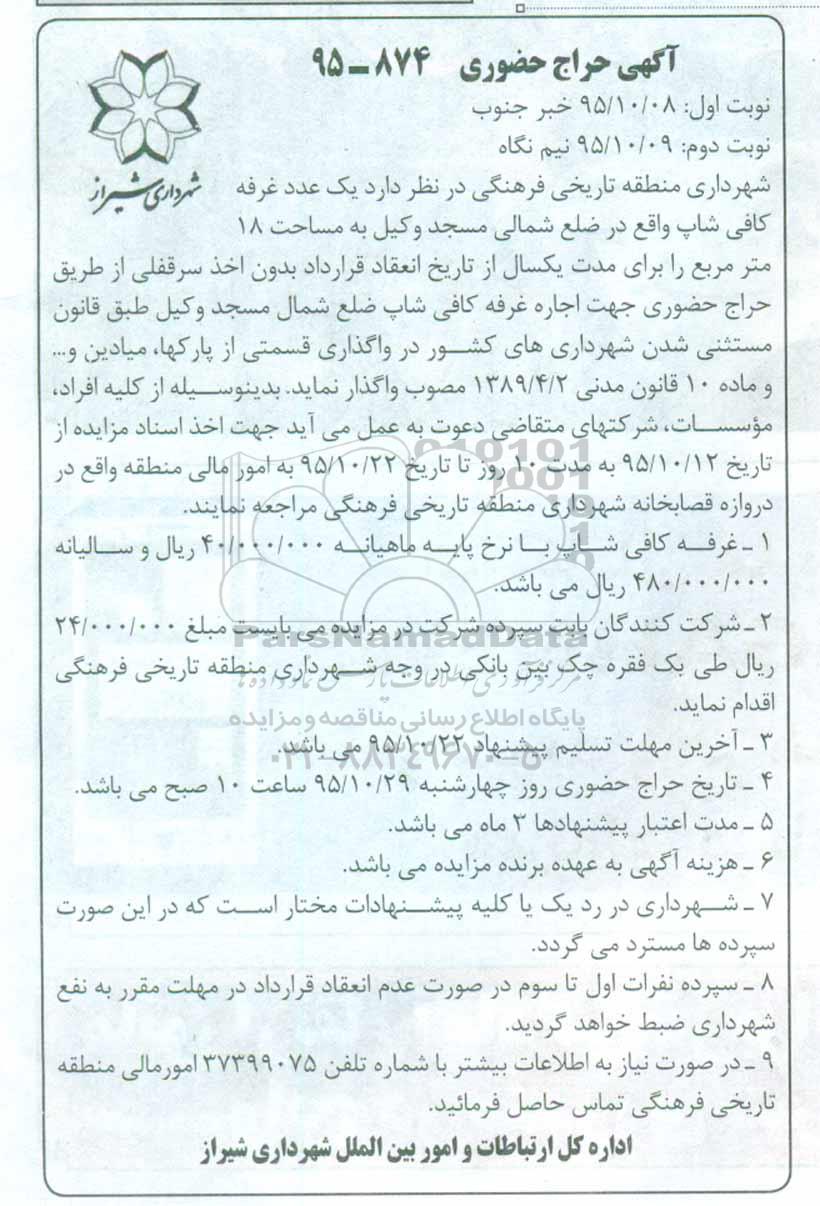 آگهی حراج حضوری ۸۷۴ ـ ۹۵
نوبت اول: ۹۵/۱۰/۰۸ خبر جنوب
نوبت دوم: ۹۵/۱۰/۰۹ نیم نگاه
شهرداری شیراز
شهرداری منطقه تاریخی فرهنگی در نظر دارد یک عدد غرفه
کافی شاپ واقع در ضلع شمالی مسجد وکیل به مساحت ۱۸
متر مربع را برای مدت یکسال از تاریخ انعقاد قرارداد بدون اخذ سرقفلی از طریق
حراج حضوری جهت اجاره غرفه کافی شاپ ضلع شمال مسجد وکیل طبق قانون
مستثنی شدن شهرداری های کشور در واگذاری قسمتی از پارکها، میادین و...
و ماده ۱۰ قانون مدنی ۱۳۸۹/۴/۲ مصوب واگذار نماید. بدینوسیله از کلیه افراد،
مؤسسات، شرکتهای متقاضی دعوت به عمل می آید جهت اخذ اسناد مزایده از
تاریخ ۹۵/۱۰/۱۲ به مدت ۱۰ روز تا تاریخ ۹۵/۱۰/۲۲ به امور مالی منطقه واقع در
دروازه قصابخانه شهرداری منطقه تاریخی فرهنگی مراجعه نمایند.
۱ ـ غرفه کافی شاپ با نرخ پایه ماهیانه ۴۰/۰۰۰/۰۰۰ ریال و سالیانه
۴۸۰/۰۰۰/۰۰۰ ریال می باشد.
۲ ـ شرکت کنندگان بابت سپرده شرکت در مزایده می بایست مبلغ ۲۴/۰۰۰/۰۰۰
ParsNamadData
ریال طی یک فقره چک بین بانکی در وجه شهرداری منطقه تاریخی فرهنگی
اقدام نماید.
پایگاه اطلاع رسانی مناقصه و مزایده
۳ ـ آخرین مهلت تسلیم پیشنهاد ۹۵/۱۰/۲۲ می باشد.
۰۲۱-۸۸۳۴۹۶۷۰-۵
۴ ـ تاریخ حراج حضوری روز چهارشنبه ۹۵/۱۰/۲۹ ساعت ۱۰ صبح می باشد.
۵ ـ مدت اعتبار پیشنهادها ۳ ماه می باشد.
۶ ـ هزینه آگهی به عهده برنده مزایده می باشد.
۷ ـ شهرداری در رد یک یا کلیه پیشنهادات مختار است که در این صورت
سپرده ها مسترد می گردد.
۸ ـ سپرده نفرات اول تا سوم در صورت عدم انعقاد قرارداد در مهلت مقرر به نفع
شهرداری ضبط خواهد گردید.
۹ ـ در صورت نیاز به اطلاعات بیشتر با شماره تلفن ۳۷۳۹۹۰۷۵ امورمالی منطقه
تاریخی فرهنگی تماس حاصل فرمائید.
اداره کل ارتباطات و امور بین الملل شهرداری شیراز